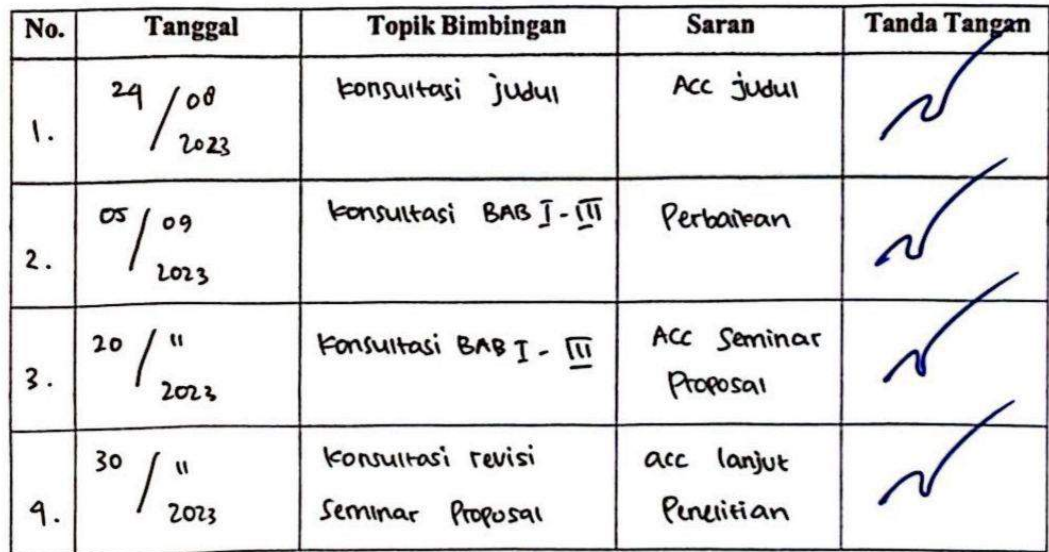 No. Tanggal Topik Bimbingan Saran Tanda Tangan
1. 24 / 08 2023 Konsultasi judul Acc judul
2. 05 / 09 2023 Konsultasi BAB I - III Perbaikan
3. 20 / 11 2023 Konsultasi BAB I - III Acc Seminar Proposal
4. 30 / 11 2023 Konsultasi revisi Seminar Proposal acc lanjut Penelitian